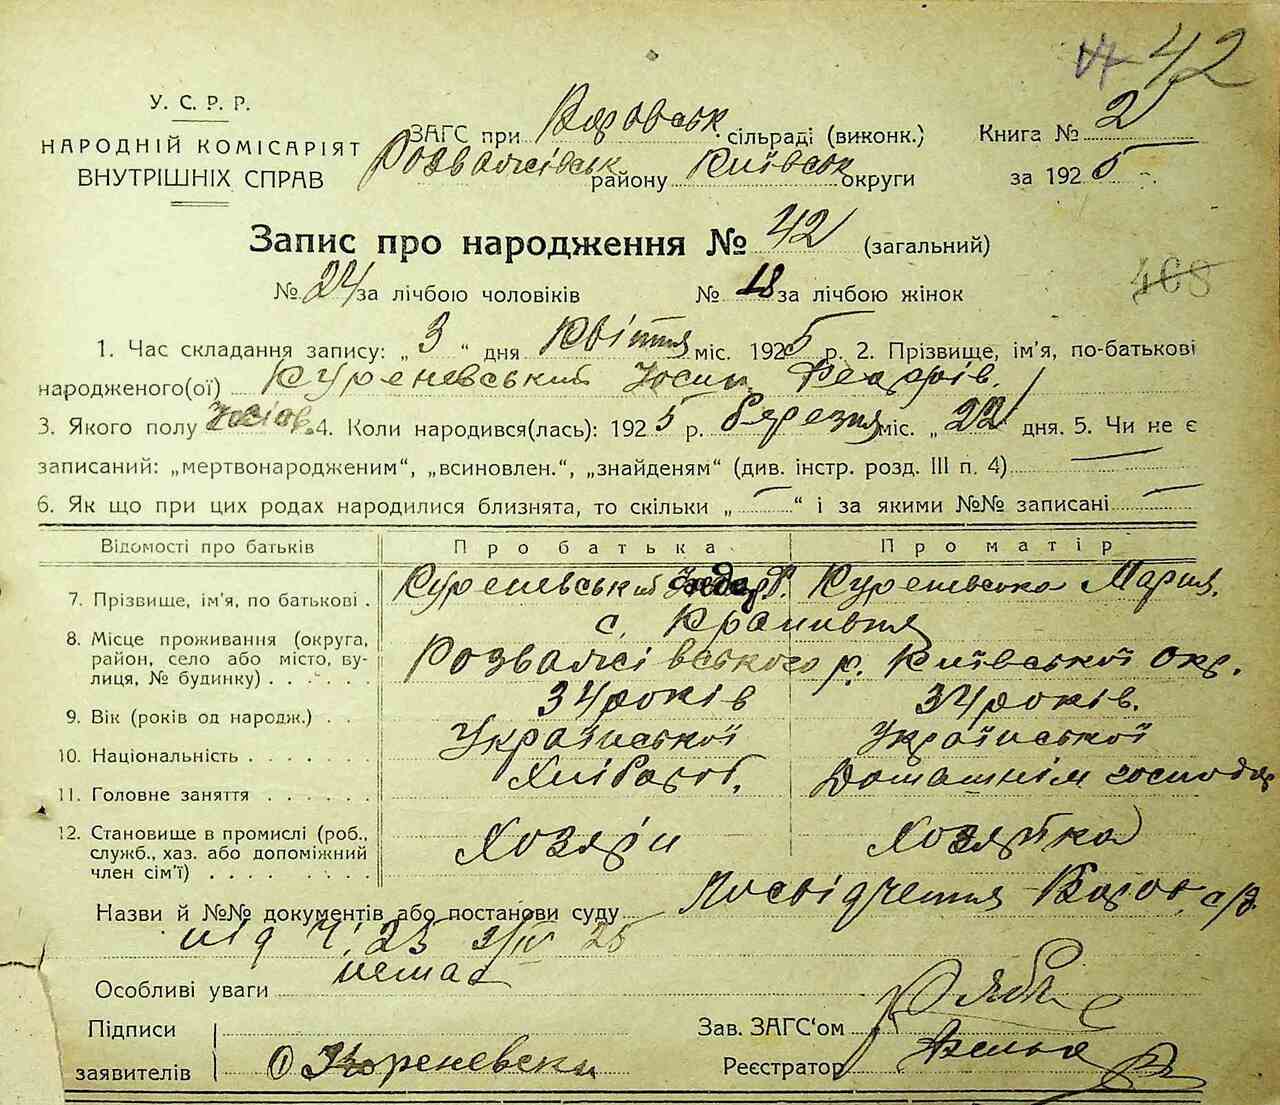 42
У. С. Р. Р.
НАРОДНІЙ КОМІСАРІЯТ
ВНУТРІШНІХ СПРАВ
ЗАГС при сільраді (виконк.)
Розважівськ району Київськ округи
Книга № 2
за 1925
Запис про народження № 42 (загальний)
№ 24 за лічбою чоловіків № 18 за лічбою жінок
468
1. Час складання запису: „ 3 “ дня Квіття міс. 1925 р. 2. Прізвище, ім'я, по-батькові
народженого(ої) Куреневський Йосип
3. Якого полу 4. Коли народився(лась): 1925 р. березня міс. „ 22 дня. 5. Чи не є
записаний: „мертвонародженим“, „всиновлен.“, „знайденям“ (див. інстр. розд. III п. 4)
6. Як що при цих родах народилися близнята, то скільки „ “ і за якими №№ записані
Відомості про батьків Про батька Про матір
7. Прізвище, ім'я, по батькові . Куреневський Куреневська Мария.
8. Місце проживання (округа, район, село або місто, вулиця, № будинку) с. Крапивня
Розважівського р. Київської окр.
9. Вік (років од народж.) . . 34 років 34 років.
10. Національність Української Української
11. Головне заняття Хлібороб. Домашнім господар
12. Становище в промислі (роб., служб., хаз. або допоміжний член сім'ї) Хозяїн Хозяйка
Назви й №№ документів або постанови суду Посвідчення с/р.
під ч. 25 3/IV 25
Особливі уваги немає
Підписи
заявителів Куреневски
Зав. ЗАГС'ом
Реєстратор